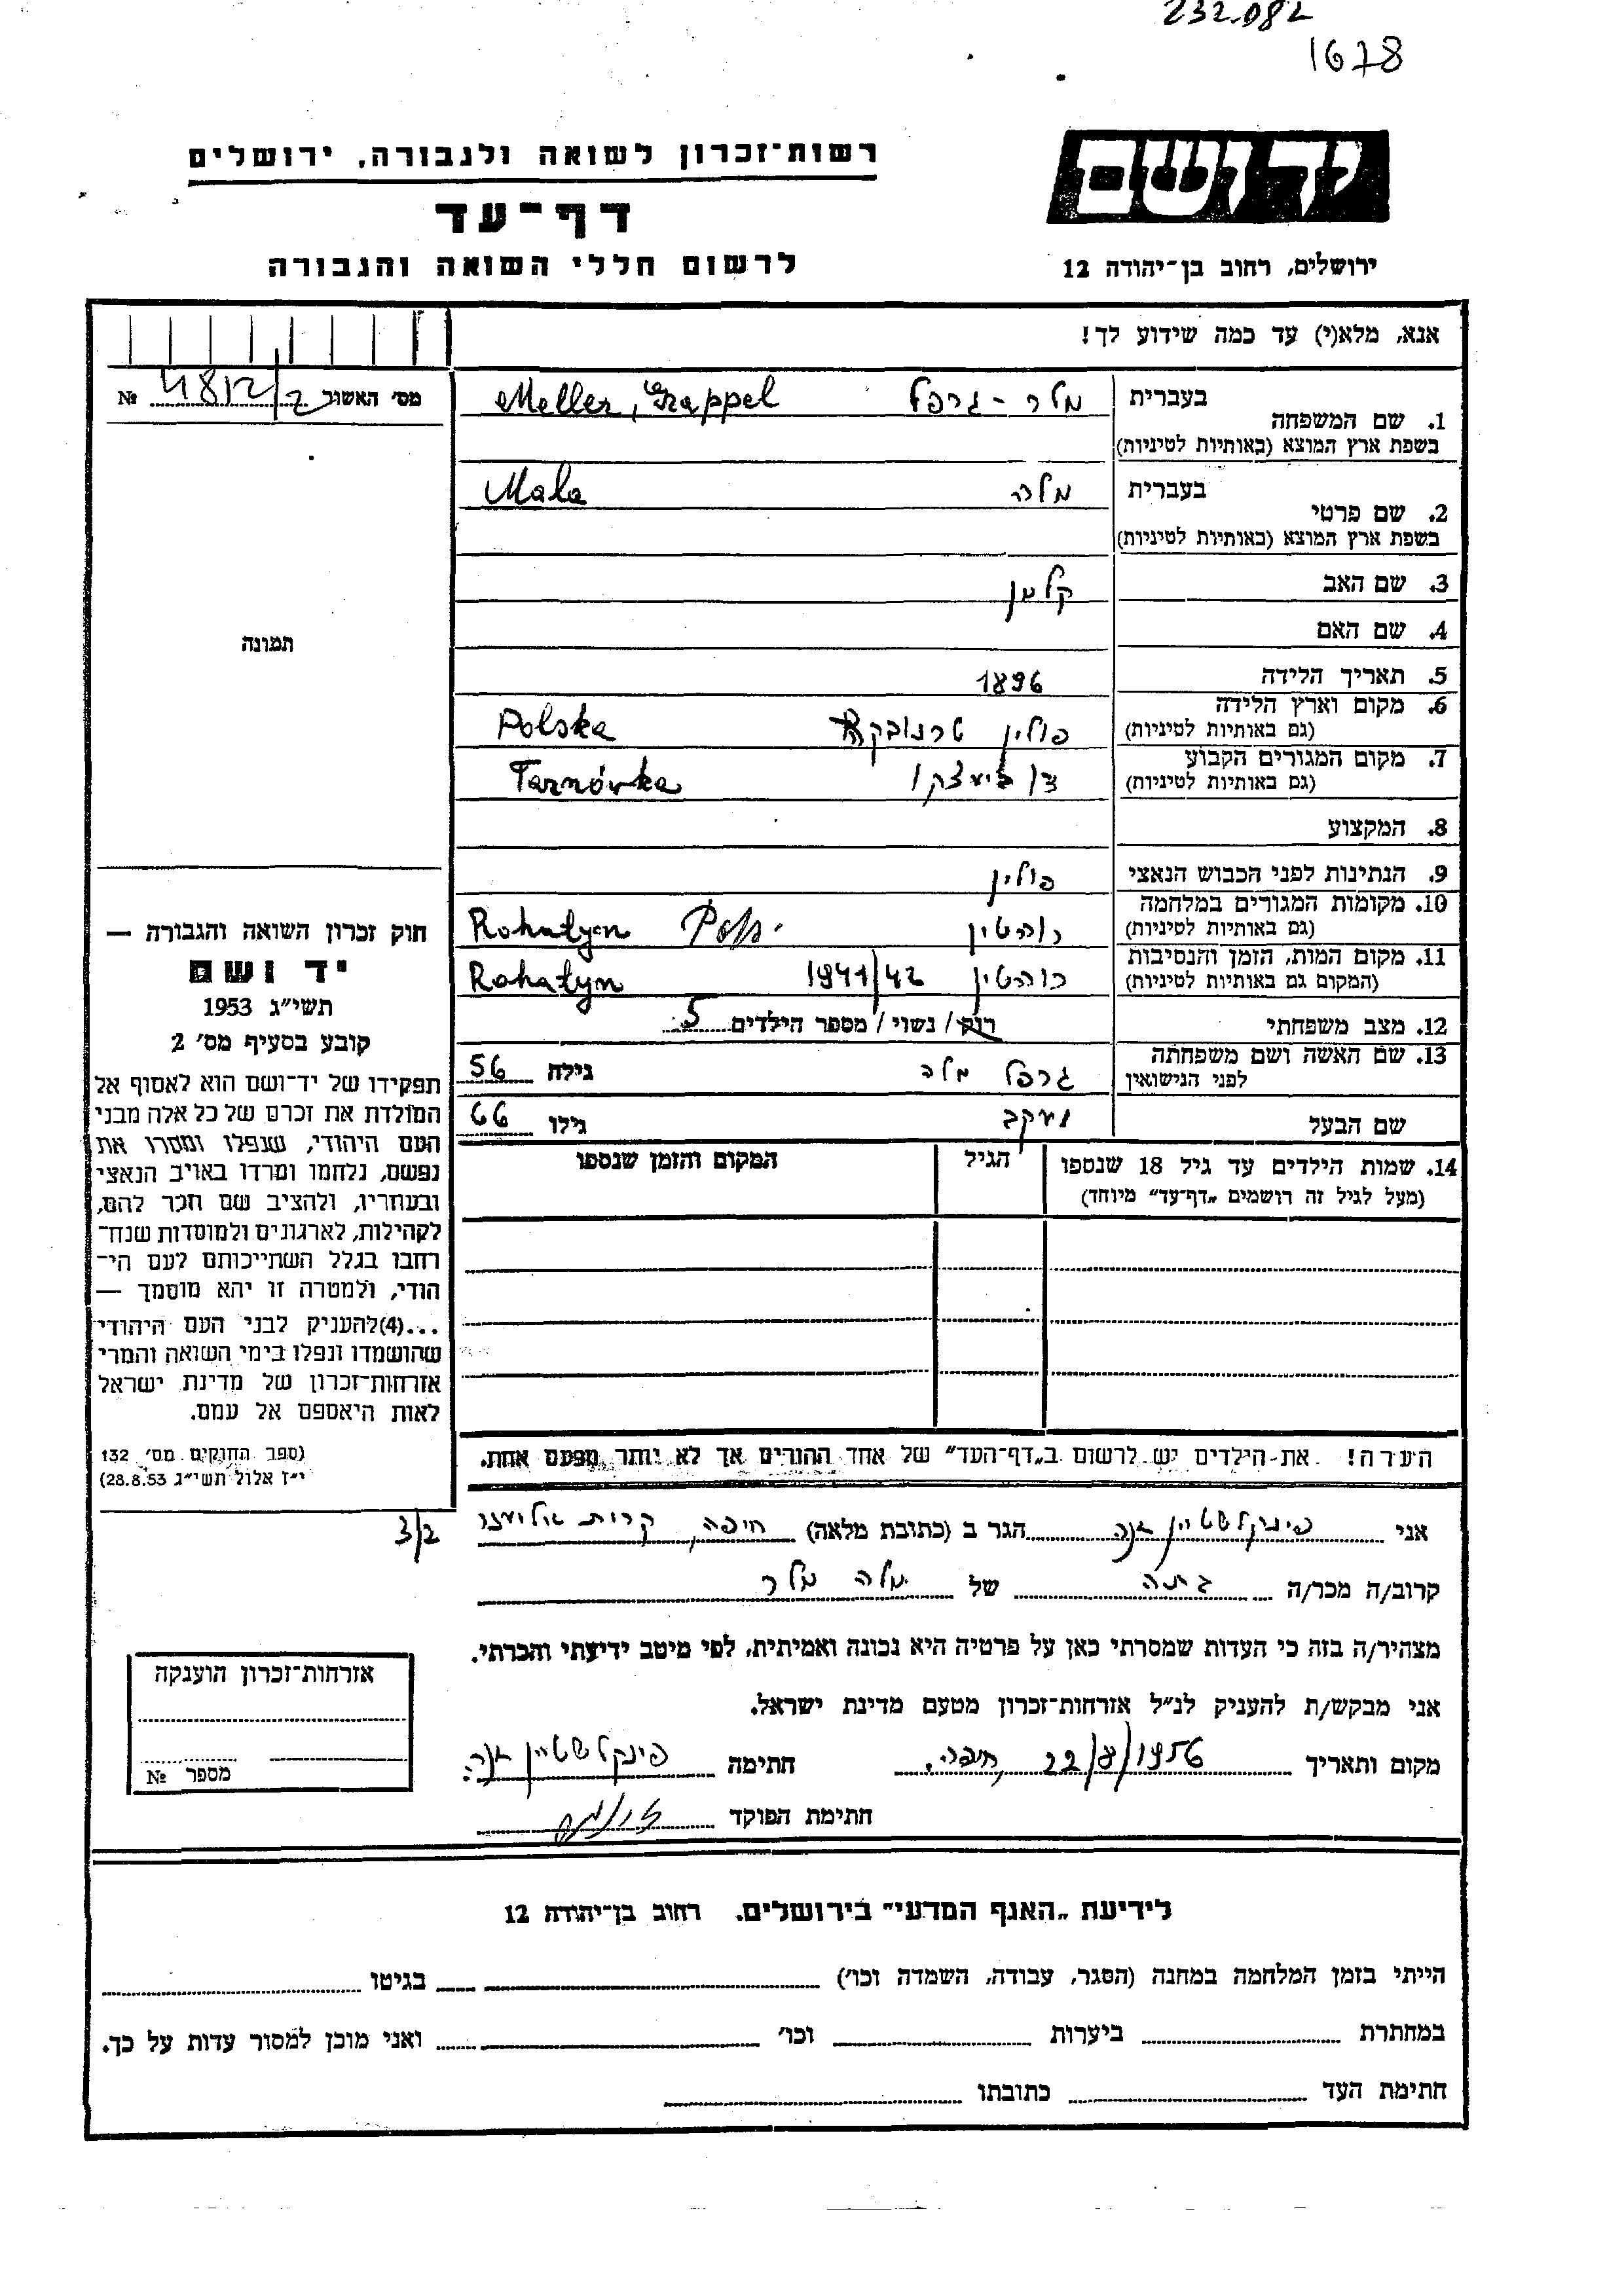 232.082
1678
יד ושם
רשות־זכרון לשואה ולגבורה, ירושלים
דף־עד
לרשום חללי השואה והגבורה
ירושלים, רחוב בן־יהודה 12
אנא, מלא(י) עד כמה שידוע לך!
מס׳ האשור 4812/2 №
תמונה
1. שם המשפחה
בעברית מלר - גרפל Meller, Grappel
בשפת ארץ המוצא (באותיות לטיניות)
2. שם פרטי
בעברית מלה Mala
בשפת ארץ המוצא (באותיות לטיניות)
3. שם האב קלמן
4. שם האם
5. תאריך הלידה 1896
6. מקום וארץ הלידה פולין טרנובקה Polska
(גם באותיות לטיניות)
7. מקום המגורים הקבוע Tarnówka
(גם באותיות לטיניות)
8. המקצוע
9. הנתינות לפני הכבוש הנאצי פולין
10. מקומות המגורים במלחמה רוהטין Rohatyn
(גם באותיות לטיניות)
11. מקום המות, הזמן והנסיבות רוהטין 1941/42 Rohatyn
(המקום גם באותיות לטיניות)
12. מצב משפחתי רוק / נשוי / מספר הילדים 5
13. שם האשה ושם משפחתה גרפל מלה גילה 56
לפני הנישואין
שם הבעל יעקב גילו 66
14. שמות הילדים עד גיל 18 שנספו הגיל המקום והזמן שנספו
(מעל לגיל זה רושמים „דף־עד״ מיוחד)
הערה! את הילדים יש לרשום ב„דף־העד״ של אחד ההורים אך לא יותר מפעם אחת.
חוק זכרון השואה והגבורה —
יד ושם
תשי״ג 1953
קובע בסעיף מס׳ 2
תפקידו של יד־ושם הוא לאסוף אל
המולדת את זכרם של כל אלה מבני
העם היהודי, שנפלו ומסרו את
נפשם, נלחמו ומרדו באויב הנאצי
ובעוזריו, ולהציב שם וזכר להם,
לקהילות, לארגונים ולמוסדות שנח־
רבו בגלל השתייכותם לעם הי־
הודי, ולמטרה זו יהא מוסמך —
...(4) להעניק לבני העם היהודי
שהושמדו ונפלו בימי השואה והמרי
אזרחות־זכרון של מדינת ישראל
לאות היאספם אל עמם.
(ספר החוקים מס׳ 132
י״ז אלול תשי״ג 28.8.53)
3/2
אני פינקלשטיין הגר ב (כתובת מלאה) חיפה, קרית אליעזר
קרוב/ה מכר/ה של מלה מלר
מצהיר/ה בזה כי העדות שמסרתי כאן על פרטיה היא נכונה ואמיתית, לפי מיטב ידיעתי והכרתי.
אני מבקש/ת להעניק לנ״ל אזרחות־זכרון מטעם מדינת ישראל.
מקום ותאריך חיפה, 22/8/1956 חתימה פינקלשטיין
חתימת הפוקד
אזרחות־זכרון הוענקה
מספר №
לידיעת „האגף המדעי״ בירושלים, רחוב בן־יהודה 12
הייתי בזמן המלחמה במחנה (הסגר, עבודה, השמדה וכו׳) בגיטו
במחתרת ביערות וכו׳ ואני מוכן למסור עדות על כך.
חתימת העד כתובתו